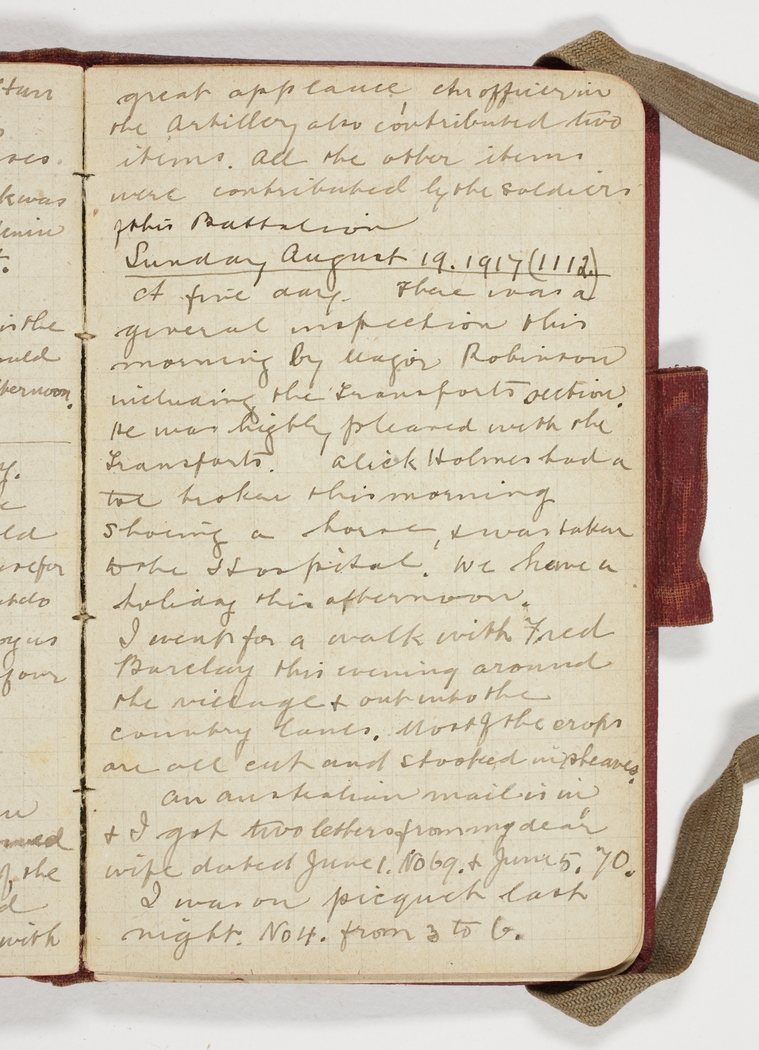 great applause, An officer in
the Artillery also contributed two
items. All the other items
were contributed by the soldiers
of this Battalion
Sunday August 19. 1917 (1112)
A fine day. There was a
general inspection this
morning by Major Robinson
including the Transports section.
He was highly pleased with the
Transports. Alick Holmes had a
toe broken this morning
shoeing a horse, & was taken
to the Hospital. We have a
holiday this afternoon.
I went for a walk with Fred
Barclay this evening around
the village & out into the
country lanes. Most of the crops
are all cut and stooked in sheaves.
An Australian mail is in
& I got two letters from my dear
wife dated June 1. No 69. & June 5. 70.
I was on picquet last
night. No 4. from 3 to 6.